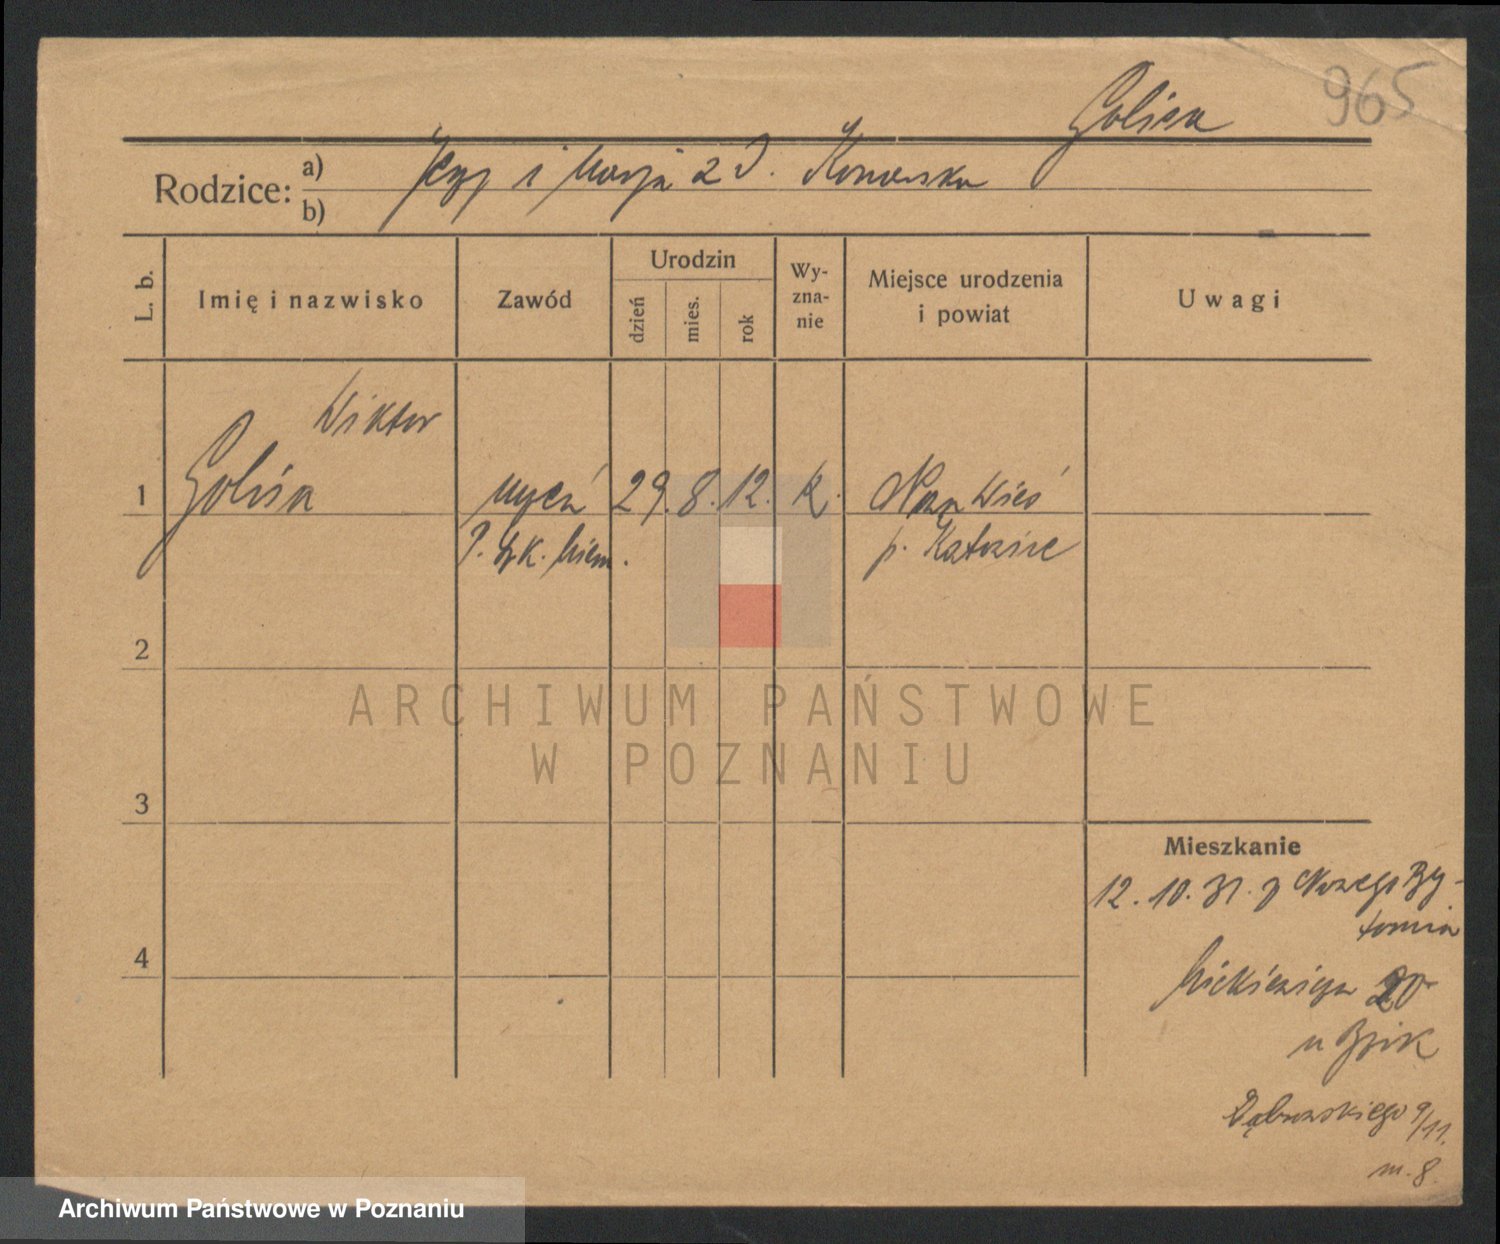 965
Golisa
Rodzice: a) Jerzy i Marja z d. Konarska
b)
L. b.
Imię i nazwisko
Zawód
Urodzin
dzień
mies.
rok
Wy-
zna-
nie
Miejsce urodzenia
i powiat
Uwagi
Wiktor
1 Golisa uczeń 29. 8. 12. k. Nowa Wieś
niem. p. Katowice
2
ARCHIWUM PAŃSTWOWE
W POZNANIU
3
Mieszkanie
12. 10. 31. z Nowego By-
tomia
4
Mickiewicza 20
u Bzik
Dąbrowskiego 9/11.
m. 8.
Archiwum Państwowe w Poznaniu